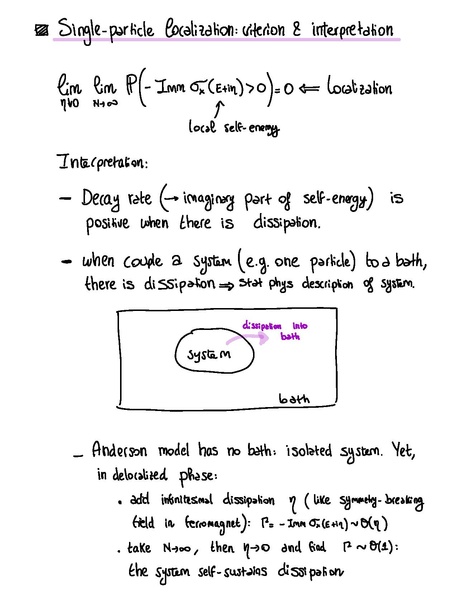 Single-particle localization: criterion & interpretation
lim η→0 lim N→∞ ℙ(- Imm σₓ(E+iη)>0)=0 ⇐ localization
local self-energy
Interpretation:
- Decay rate (→ imaginary part of self-energy) is
positive when there is dissipation.
- when couple a system (e.g. one particle) to a bath,
there is dissipation ⇒ stat phys description of system.
dissipation into
bath
system
bath
- Anderson model has no bath: isolated system. Yet,
in delocalized phase:
• add infinitesmal dissipation η (like symmetry-breaking
field in ferromagnet): Γ = -Imm σₓ(E+iη) ~ O(η)
• take N→∞, then η→0 and find Γ ~ O(1):
the system self-sustains dissipation